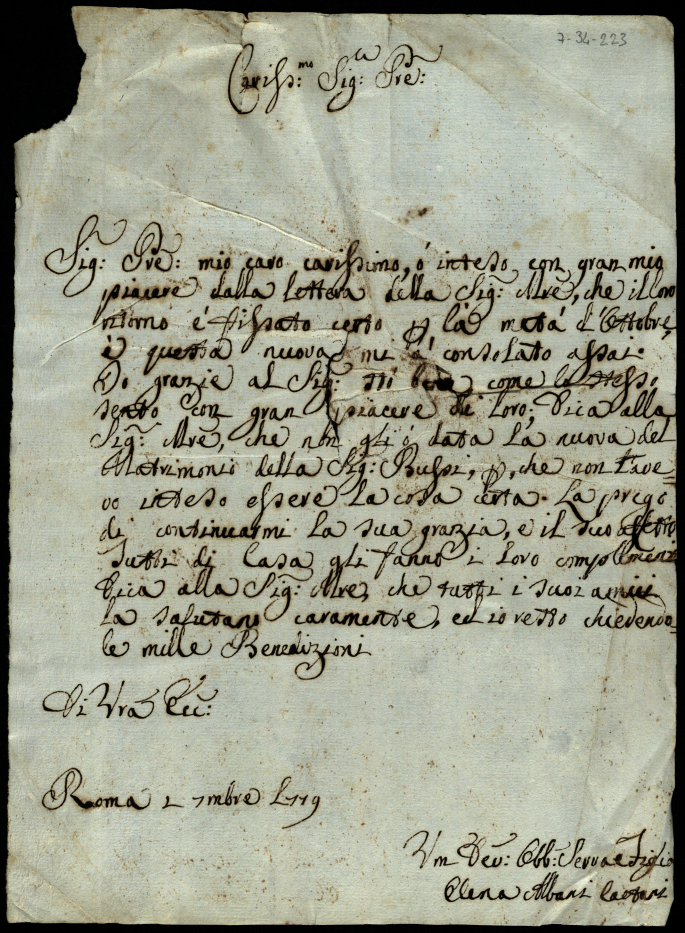 7-34-223
Cariss:mo Sig:ra Pre:
Sig: Pre: mio caro carissimo, ó inteso con gran mio
piacere dalla lettera della Sig: Mre, che il loro
ritorno é fissato certo p la metá d'Ottobre,
é questa nuova mi á consolato assai.
Do grazie al Sig: sti bene come lo stesso
sento con gran piacere di loro; Dica alla
Sig: Mre, che non gli ó data la nuova del
Matrimonio della Sig: Bussi, p, che non l'ave-
vo inteso essere la cosa certa. La prego
di continuarmi la sua grazia, e il suo affetto
Tutti di Casa gli fanno i loro complimenti
Dica alla Sig: Mre, che tutti i suoi amici
la salutano caramente, ed io resto chiedendo-
le mille Benedizioni
Di Vra Ecc:
Roma 2 7mbre 1779
Um Dev: Obb: Serva e Figlia
Elena Albani Caetani